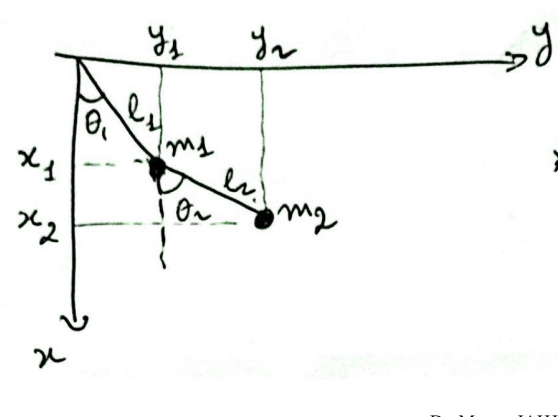 y1 y2 y
θ1 l1
x1 m1
l2
x2 θ2 m2
x